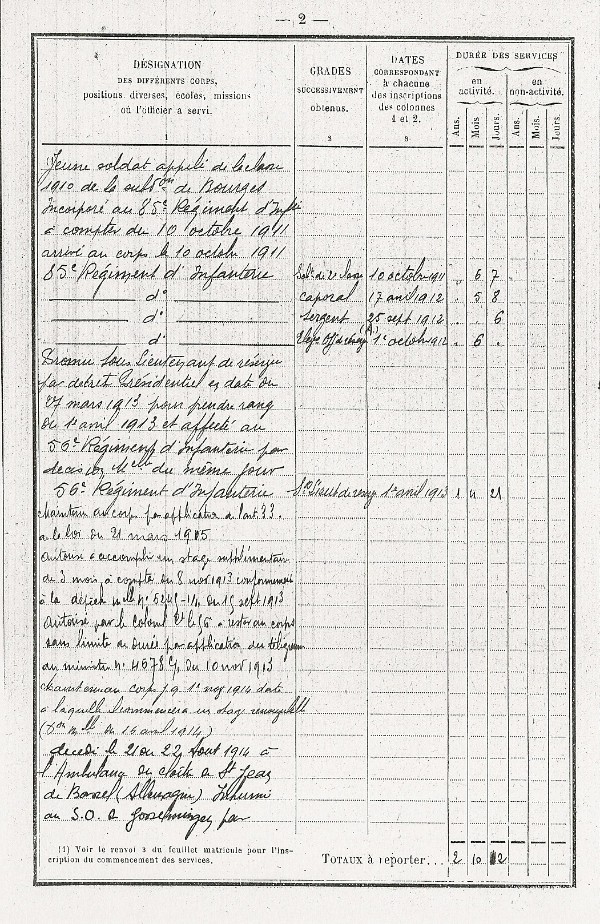 — 2 —
DÉSIGNATION
DES DIFFÉRENTS CORPS,
positions diverses, écoles, missions
où l'officier a servi.
1
GRADES
SUCCESSIVEMENT
obtenus.
2
DATES
CORRESPONDANT
à chacune
des inscriptions
des colonnes
1 et 2.
3
DURÉE DES SERVICES
en
activité.
en
non-activité.
Ans.
Mois
Jours.
Ans.
Mois.
Jours.
Jeune soldat appelé de la classe
1910 de la subdon de Bourges
Incorporé au 85e Régiment d'Infie
à compter du 10 octobre 1911
arrivé au corps le 10 octobre 1911
85e Régiment d'Infanterie Solt de 2e classe 10 octobre 1911 " 6 7
do caporal 17 avril 1912 " 5 8
do Sergent 25 sept 1912 " . 6
do Elève Off de rés 1er octobre 1912 " 6 "
Promu Sous Lieutenant de réserve
par décret Présidentiel en date du
27 mars 1913 pour prendre rang
du 1er avril 1913 et affecté au
56e Régiment d'Infanterie par
décision Melle du même jour
56e Régiment d'Infanterie S Lieut de rés 1er avril 1913 1 4 21
Maintenu au corps par application de l'art 33
de la loi du 21 mars 1905
Autorisé à accomplir un stage supplémentaire
de 3 mois, à compter du 8 nov 1913 conformément
à la dépêche Melle no 5245-1/4 du 15 sept 1913
Autorisé par le colonel Ct le 56 à rester au corps
sans limite de durée par application du télégramme
du ministre no 4578 du 10 nov 1913
au corps 1er nov 1914 date
à laquelle il commencera un stage
du 16 avril 1914)
décédé le 21 ou 22 Août 1914 à
l'Ambulance du cloître de St Jean
de Bassel (Allemagne) Inhumé
au S.O. de Gosselmingen par
(1) Voir le renvoi 3 du feuillet matricule pour l'ins-
cription du commencement des services.
TOTAUX à reporter... 2 10 12